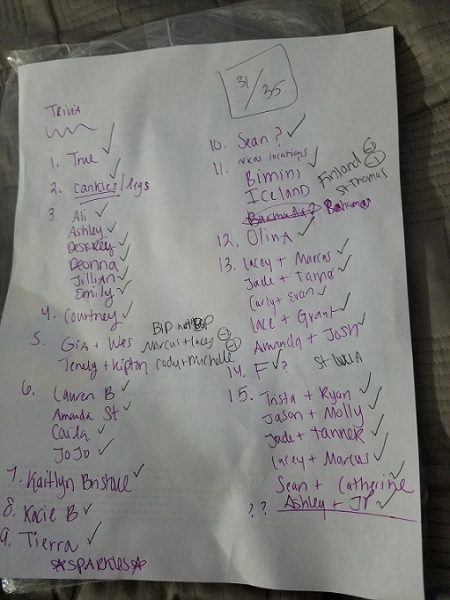 31/35
TRIVIA
1. True ✓
2. cankles/legs ✓
3. Ali ✓
Ashley ✓
DESEREY ✓
Deonna ✓
Jillian ✓
Emily ✓
4. Courtney ✓
5. Gia + Wes
Tenely + Kipton
BIP not BP
Marcus + Lacey -1
Cody + Michelle -1
6. Lauren B ✓
Amanda St ✓
Caila ✓
JoJo ✓
7. Kaitlyn Bristowe ✓
8. Kacie B ✓
9. Tierra ✓
☆SPARKLES☆
10. Sean? ✓
11. Nicks locations
Bimini ✓
Iceland
Bahamas
Finland -1
St Thomas -1
12. Olivia ✓
13. Lacey + Marcus ✓
Jade + Tanner ✓
Carly + Evan ✓
Lace + Grant ✓
Amanda + Josh ✓
14. F ✓? St Lucia
15. Trista + Ryan ✓
Jason + Molly ✓
Jade + Tanner ✓
Lacey + Marcus ✓
Sean + Catherine ✓
?? Ashley + JP ✓